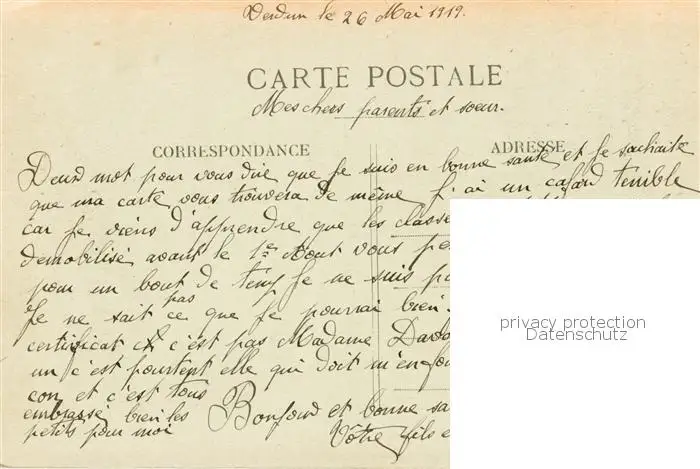 Verdun le 26 Mai 1919.
CARTE POSTALE
Mes chers parents et soeur.
CORRESPONDANCE
ADRESSE
Deux mot pour vous dire que je suis en bonne santé et je souhaite
que ma carte vous trouvera de même j'ai un cafard terrible
car je viens d'apprendre que les classe
demobilisé avant le 1er Aout vous
pour un bout de temp je ne suis
Je ne sait pas ce que je pourrai bien
certificat c'est pas Madame
un c'est pourtent elle qui doit
con et c'est tous
embrassé bien les Bonjour et bonne
petits pour moi Vôtre fils
privacy protection
Datenschutz